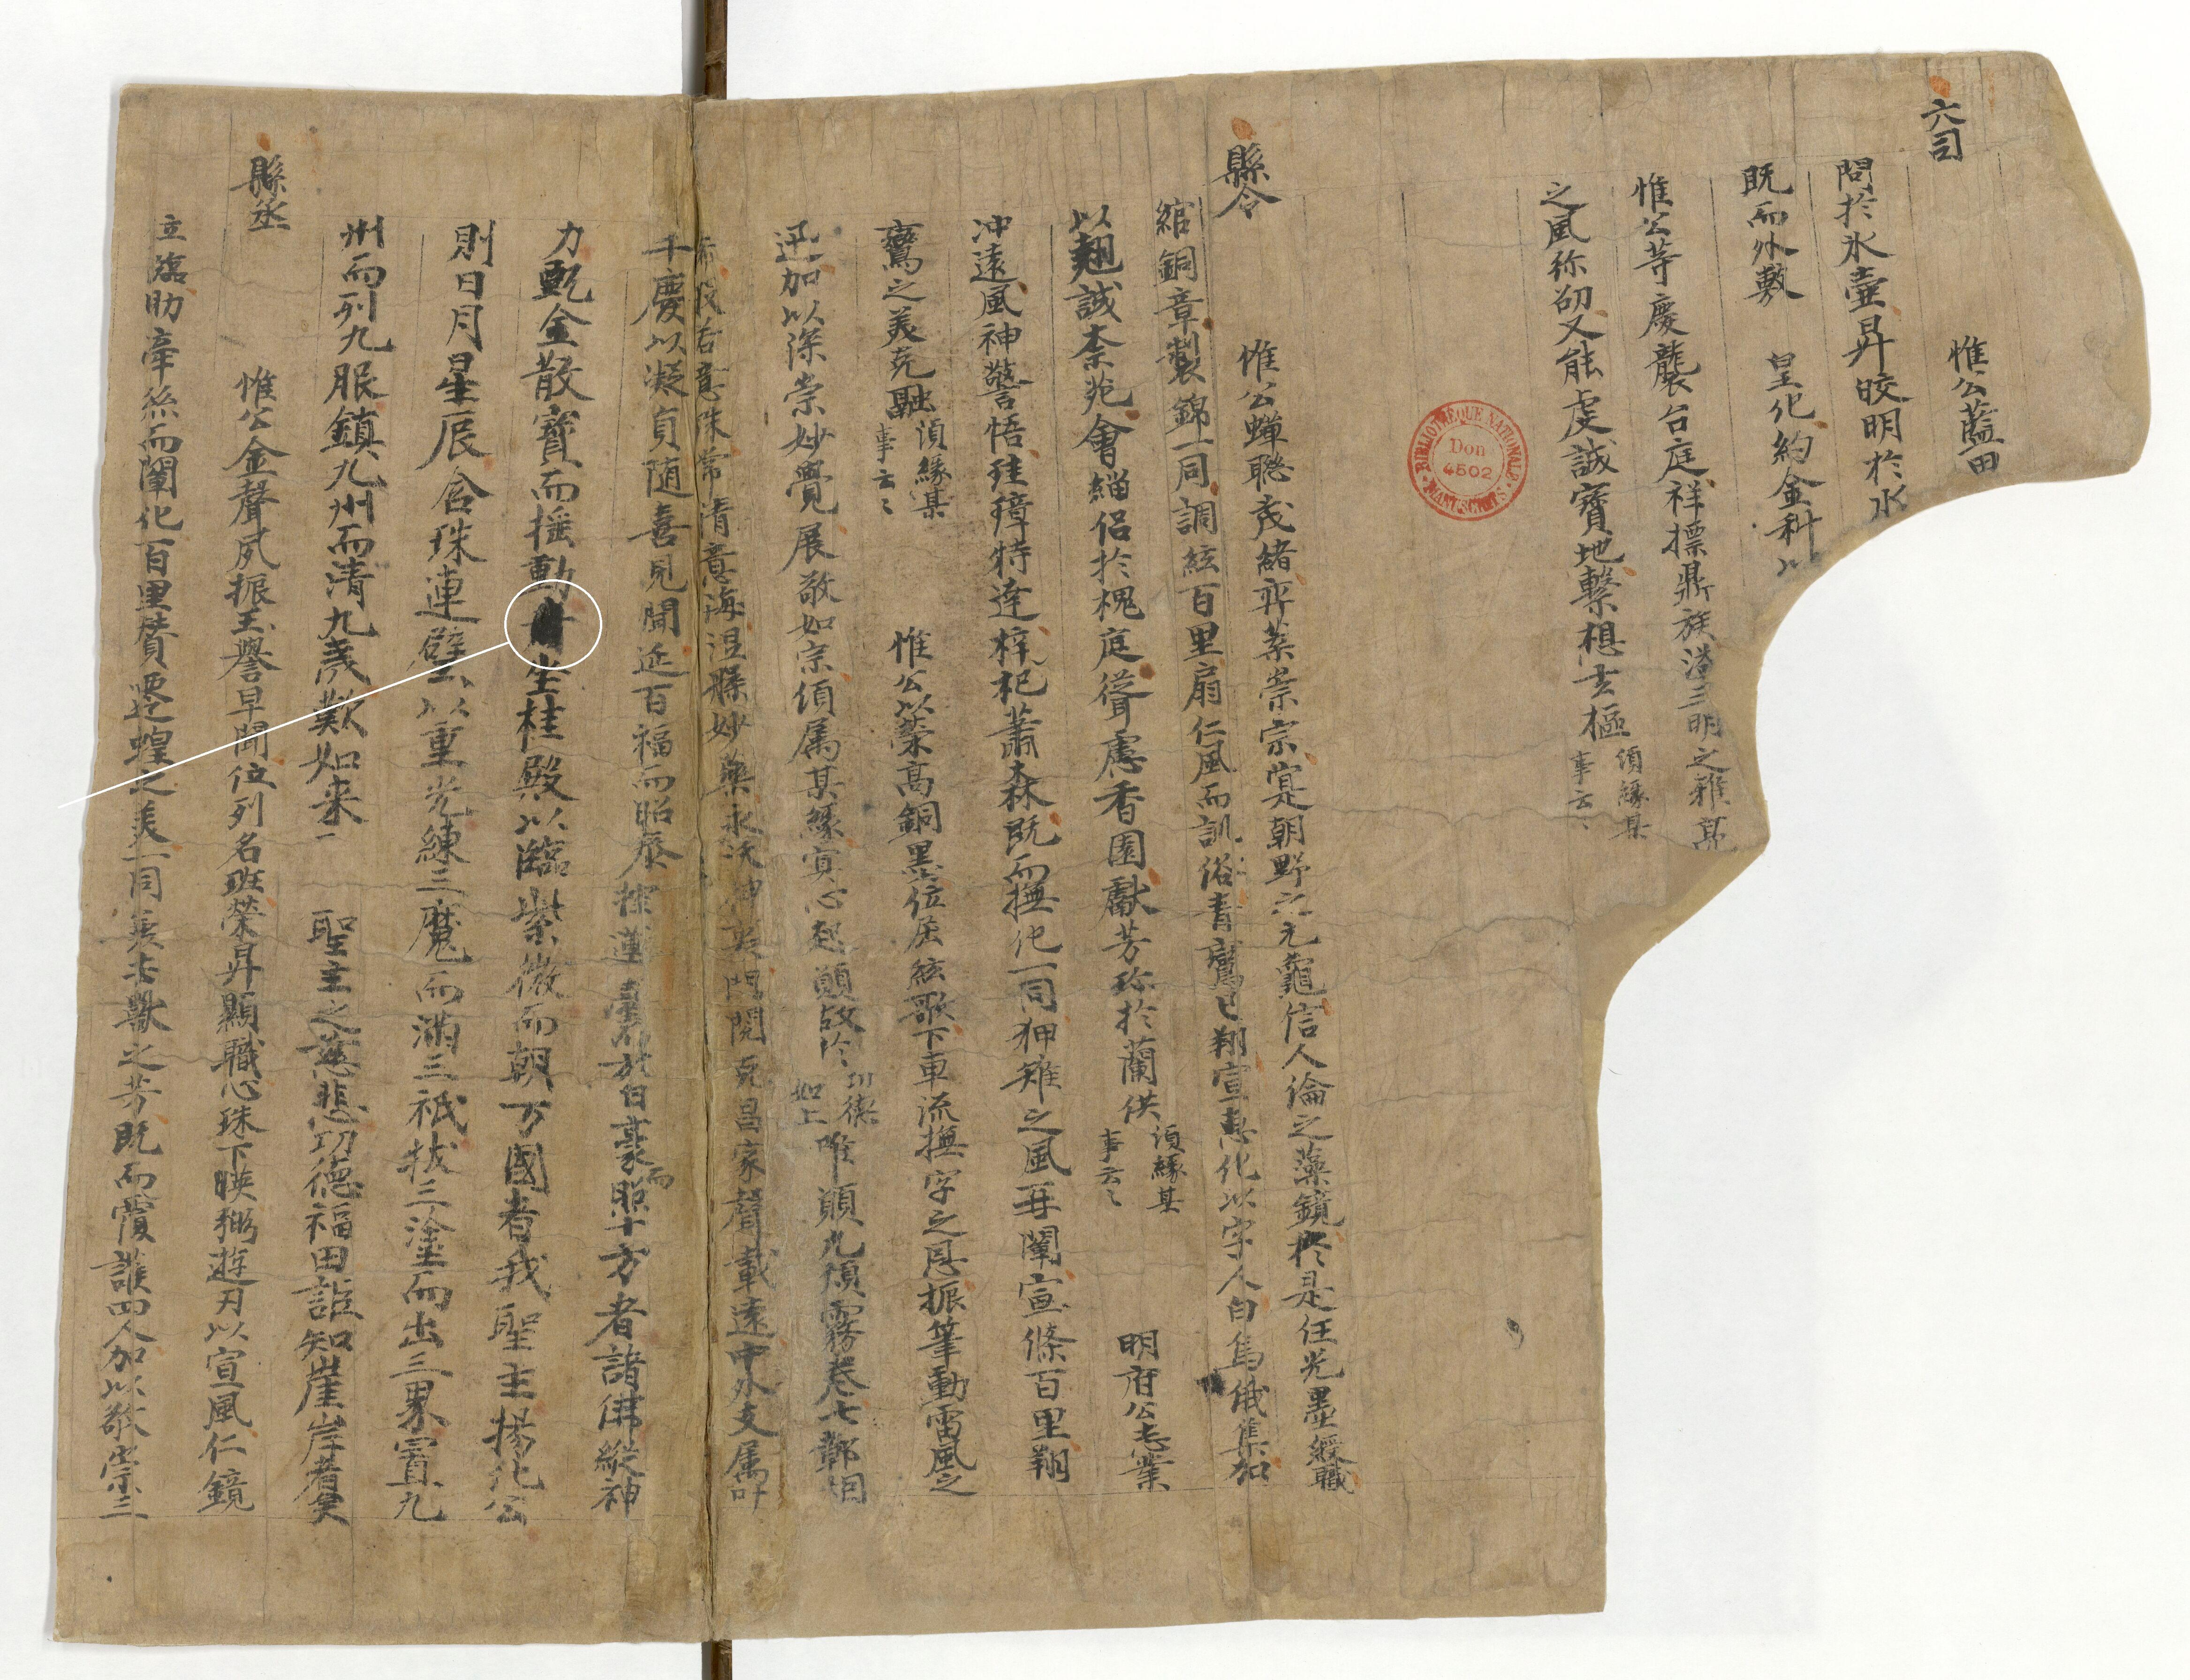 六司
惟公藍田
問於氷壺昇晈明於水
既而外敷 皇化約金科以
惟公等慶襲台庭祥摽鼎族洽三明之雅
之風弥劭又能虔誠寶地繫想玄樞 湏緣某事云〻
縣令
惟公蟬聮茂緒弈葉崇宗寔朝野之元龜信人倫之藻鏡於是任光墨綬職
綰銅章製錦一同調絃百里扇仁風而訓俗青鸞已翔宣惠化以字人白烏俄集加
以翹誠柰菀會緇侣於槐庭聳慮香園獻芳珎於蘭供 湏緣某事云〻 明府公志業
冲遠風神警悟珪璋特達梓杞蕭森既而撫化一同狎雉之風再闡宣條百里翔
鸞之美克融 湏緣某事云〻 惟公以榮高銅墨位居絃歌下車流撫字之恩振筆動雷風之
迅加以深崇妙覺展敬如宗湏属某緣寘心起願故於〻 功德如上 唯願九煩霧卷七鄣烟
清意海湼槃妙藥永沃神 門閱克昌家聲載遠中外支属叶
千慶以凝貞随喜見聞延百福而昭泰 蓮臺 於白豪而照十方者諸佛縱神
力甄金散寶而揺動 生桂殿以臨紫微而朝万國者我聖主揚化公
則日月星辰含珠連璧以重光練三魔而滿三祇拔三塗而出三界賓九
州而列九服鎮九州而清九歲歎如来一 聖主之慈悲功德福田詎知崖岸者矣
縣丞
惟公金聲夙振玉譽早聞位列名班榮昇顯職心珠下暎 遊刃以宣風仁鏡
立臨助牽絲而闡化百里賛遷蝗之美一同 去獸之芳既而霞 四人加以敬崇三
BIBLIOTHÈQUE NATIONALE
Don
4502
MANUSCRITS